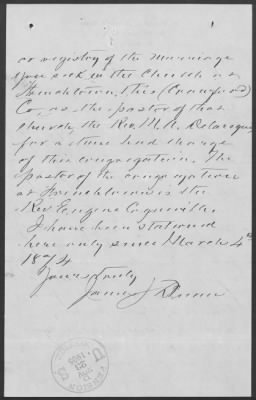 or registry of the marriage
you seek in the Church at
Frenchtown, this (Crawford)
Co., as the pastor of that
church, the Rev. M. A. Delaroque
for a time had charge
of this congregation. The
pastor of the congregation
at Frenchtown is the
Rev. Eugene Cogneville.
I have been stationed
here only since March 4th
1874
Yours truly
James J. Dunn
U S